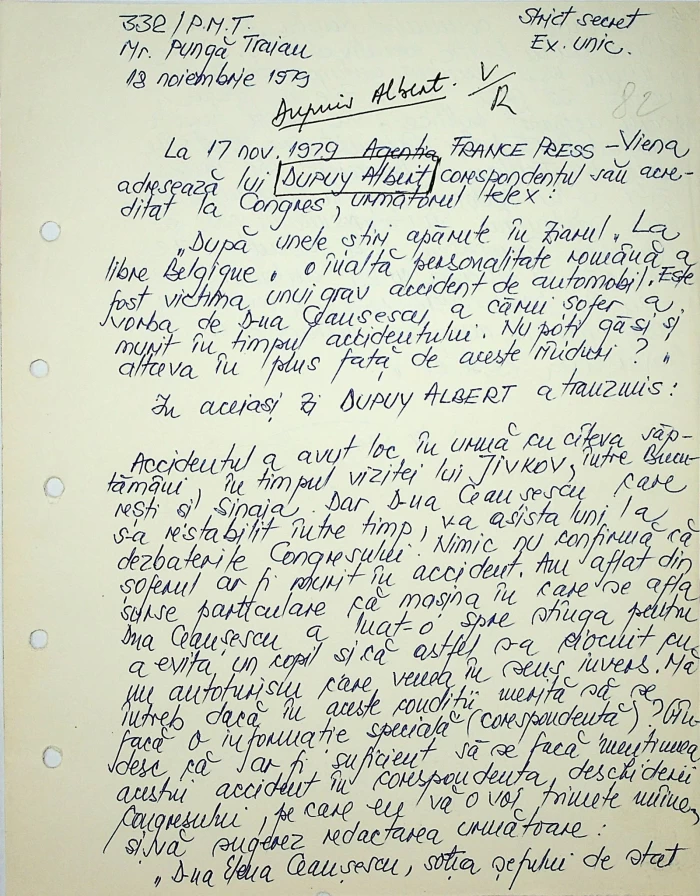 332/P.M.T.
Strict secret
Mr. Pungă Traian
Ex. unic.
18 noiembrie 1979
Dupuis Albert. V/R
82
La 17 nov. 1979 Agenția FRANCE PRESS - Viena
adresează lui DUPUY Albert, corespondentul său acre-
ditat la Congres, următorul telex:
„După unele știri apărute în ziarul „La
libre Belgique" o înaltă personalitate română a
fost victima unui grav accident de automobil. Este
vorba de D-na Ceaușescu, a cărui șofer a
murit în timpul accidentului. Nu poți găsi și
altceva în plus față de aceste rînduri?"
In aceiași zi DUPUY ALBERT a tranzmis:
Accidentul a avut loc în urmă cu cîteva săp-
tămîni în timpul vizitei lui JIVKOV, între Bucu-
rești și Sinaia. Dar D-na Ceaușescu care
s-a restabilit între timp, va asista luni la
dezbaterile Congresului. Nimic nu confirmă că
șoferul ar fi murit în accident. Am aflat din
surse particulare că mașina în care se afla
Dna Ceaușescu a luat-o spre stînga pentru
a evita un copil și că astfel s-a ciocnit cu
un autoturism care venea în sens invers. Mă
întreb dacă în aceste condiții merită să se
facă o informație specială (corespondență)? Gîn-
desc că ar fi suficient să se facă mențiunea
acestui accident în corespondența deschiderii
Congresului, pe care eu vă o voi trimite mîine,
și vă sugerez redactarea următoare:
„D-na Elena Ceaușescu, soția șefului de stat